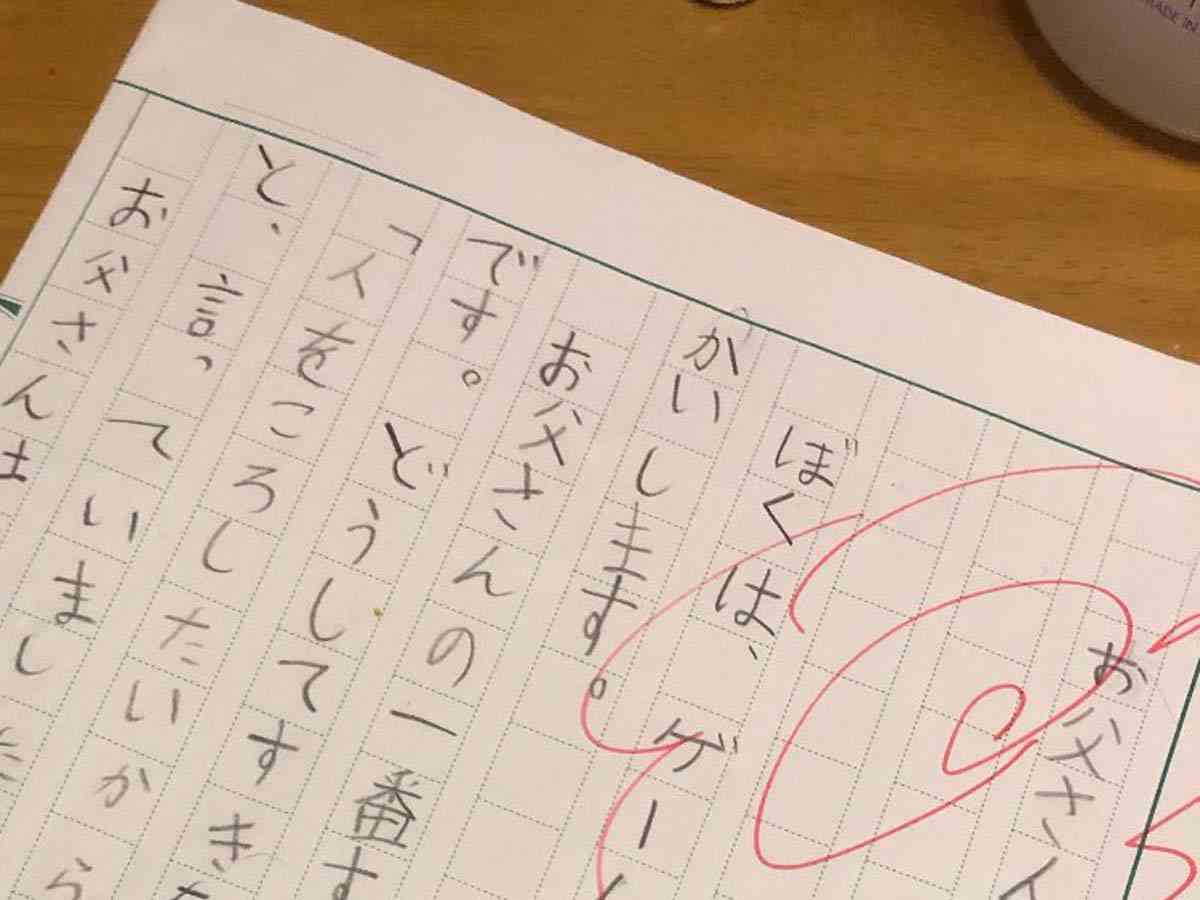 お父さん
ぼくは、ゲー
かいします。
お父さんの一番す
です。どうしてすき
「人をころしたいから
と、言っていました
お父さんは
MADE IN